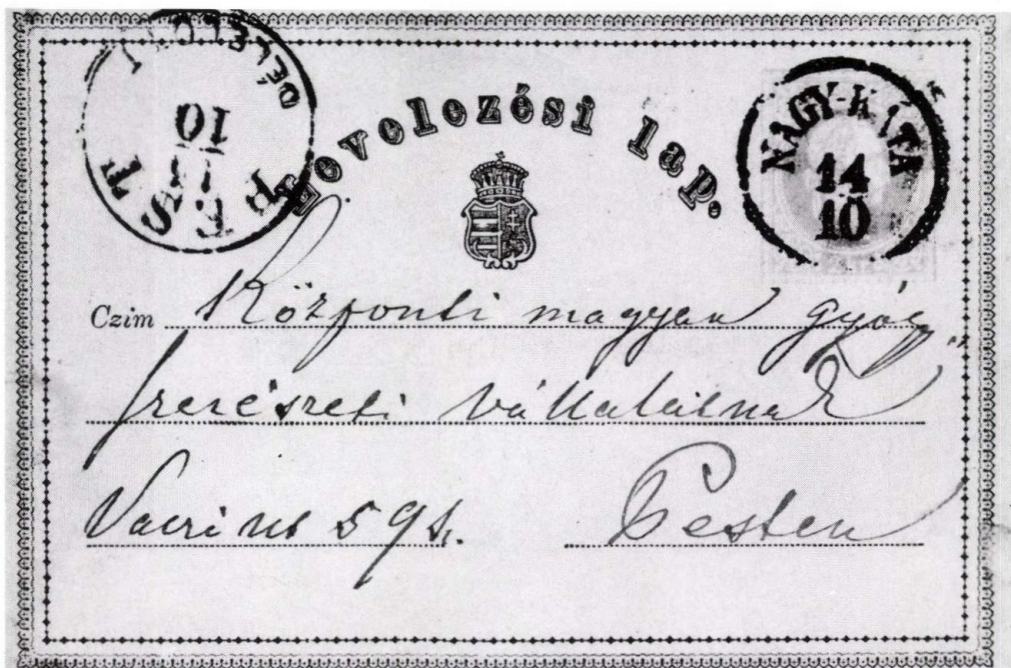 PEST
10
Levelezési lap.
NAGY-KÁTA
14
10
Czim Központi magyar gyógy
szerészeti vállalatnak
Vaczi ut 59 sz. Pesten